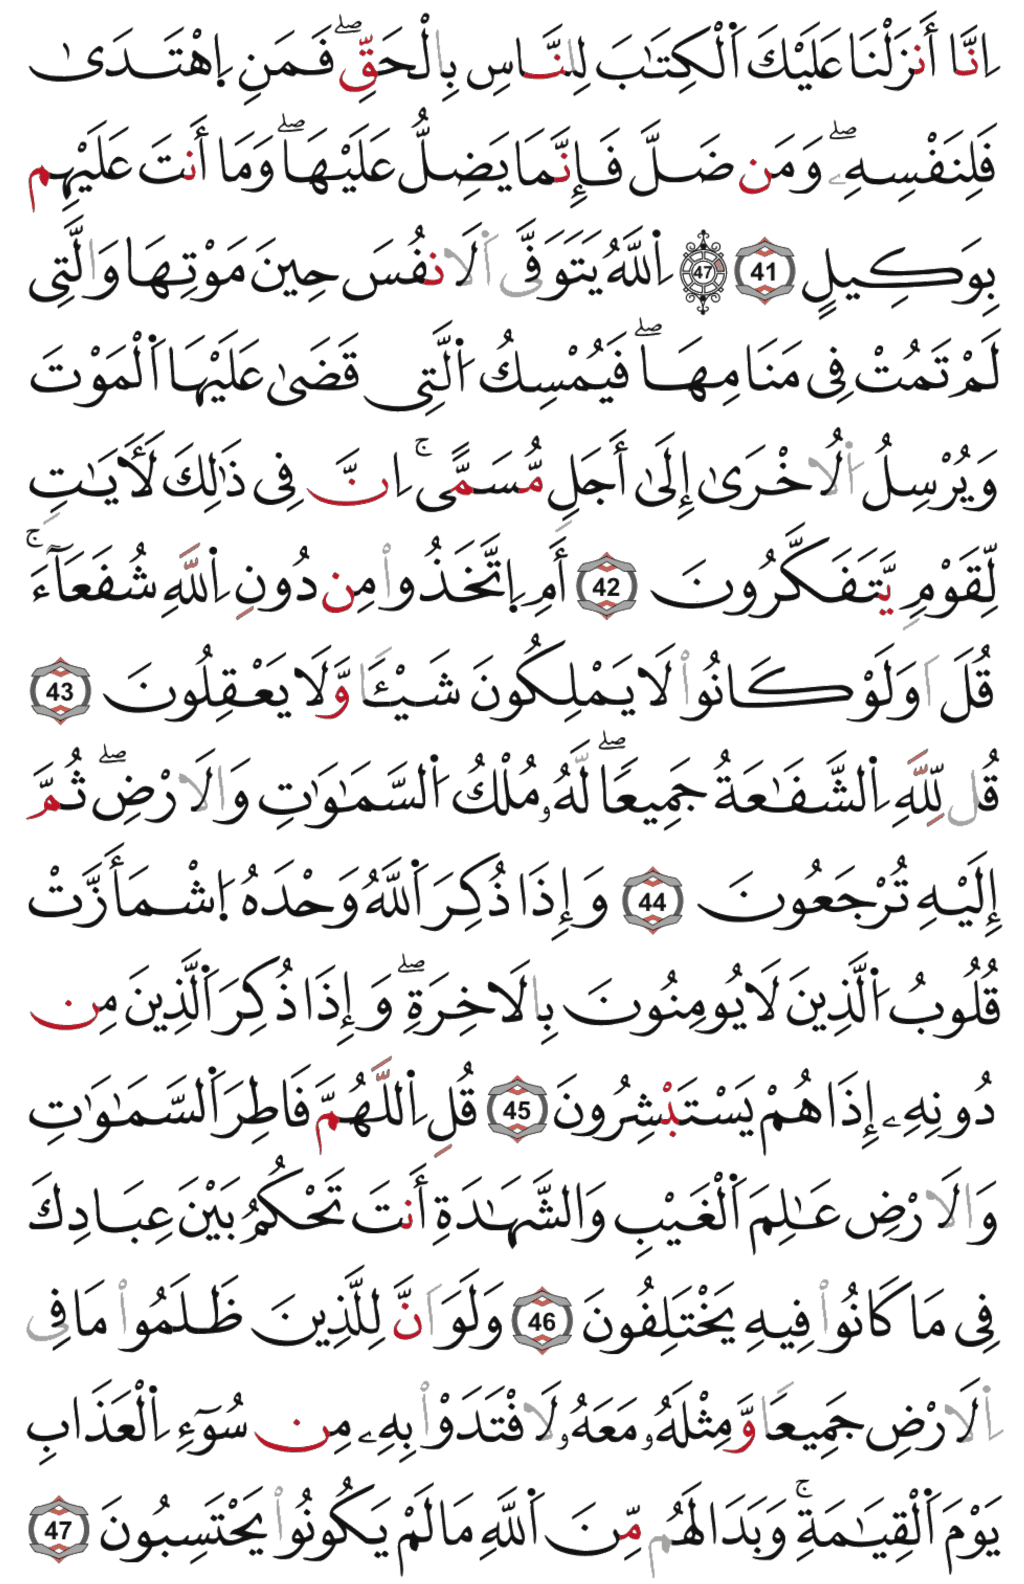 اِنَّا أَنزَلْنَا عَلَيْكَ اَ۬لْكِتَٰبَ لِلنَّاسِ بِالْحَقِّۖ فَمَنِ اِ۪هْتَد۪ىٰ
فَلِنَفْسِهِۦۖ وَمَن ضَلَّ فَإِنَّمَا يَضِلُّ عَلَيْهَاۖ وَمَا أَنتَ عَلَيْهِم
بِوَكِيلٍ 41 47 اِ۬للَّهُ يَتَوَفَّى اَ۬لَانفُسَ حِينَ مَوْتِهَا وَالَّتِي
لَمْ تَمُتْ فِي مَنَامِهَاۖ فَيُمْسِكُ اُ۬لَّتِي قَضَىٰ عَلَيْهَا اَ۬لْمَوْتَ
وَيُرْسِلُ اُ۬لُاخْرَىٰ إِلَىٰ أَجَلٖ مُّسَمًّىۚ اِنَّ فِي ذَٰلِكَ لَأٓيَٰتٖ
لِّقَوْمٖ يَّتَفَكَّرُونَ 42 أَمِ اِ۪تَّخَذُواْ مِن دُونِ اِ۬للَّهِ شُفَعَآءَۚ
قُلَ اَوَلَوْ كَانُواْ لَا يَمْلِكُونَ شَيْـٔاٗ وَّلَا يَعْقِلُونَ 43
قُل لِّلَّهِ اِ۬لشَّفَٰعَةُ جَمِيعاٗۖ لَّهُۥ مُلْكُ اُ۬لسَّمَٰوَٰتِ وَالَارْضِۖ ثُمَّ
إِلَيْهِ تُرْجَعُونَ 44 وَإِذَا ذُكِرَ اَ۬للَّهُ وَحْدَهُ اُ۪شْمَأَزَّتْ
قُلُوبُ اُ۬لَّذِينَ لَا يُومِنُونَ بِالَاخِرَةِۖ وَإِذَا ذُكِرَ اَ۬لَّذِينَ مِن
دُونِهِۦ إِذَا هُمْ يَسْتَبْشِرُونَ 45 قُلِ اِ۬للَّهُمَّ فَاطِرَ اَ۬لسَّمَٰوَٰتِ
وَالَارْضِ عَٰلِمَ اَ۬لْغَيْبِ وَالشَّهَٰدَةِ أَنتَ تَحْكُمُ بَيْنَ عِبَادِكَ
فِي مَا كَانُواْ فِيهِ يَخْتَلِفُونَ 46 وَلَوَ اَنَّ لِلَّذِينَ ظَلَمُواْ مَا فِي
اِ۬لَارْضِ جَمِيعاٗ وَّمِثْلَهُۥ مَعَهُۥ لَافْتَدَوْاْ بِهِۦ مِن سُوٓءِ اِ۬لْعَذَابِ
يَوْمَ اَ۬لْقِيَٰمَةِۚ وَبَدَا لَهُم مِّنَ اَ۬للَّهِ مَا لَمْ يَكُونُواْ يَحْتَسِبُونَ 47